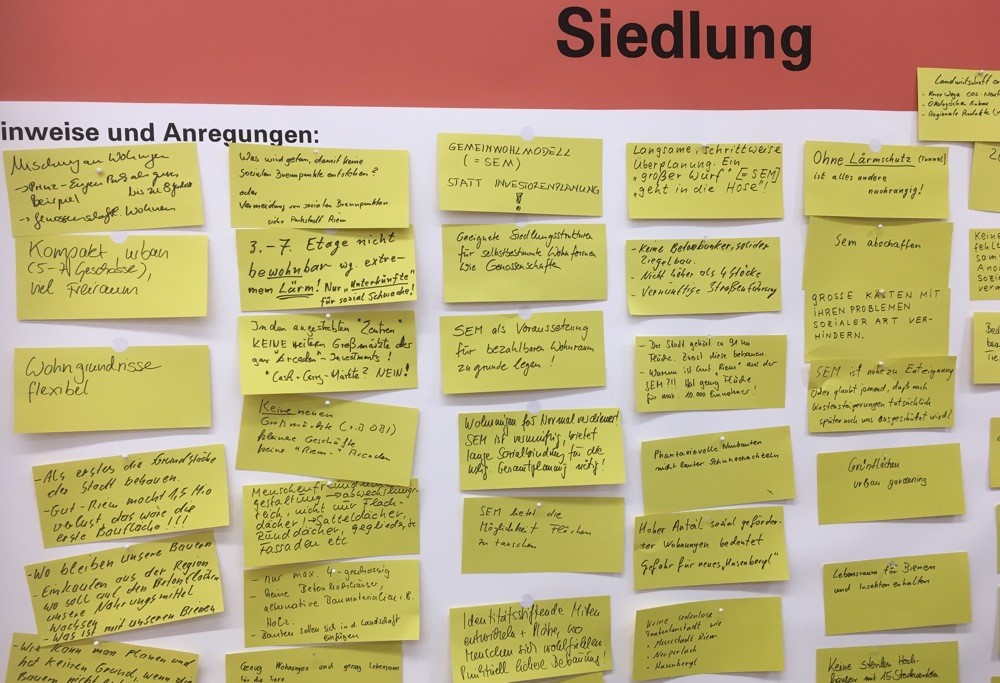 Siedlung
inweise und Anregungen:
Mischung an Wohnungen
Beispiel bis zu 8
→ Wohnen
Kompakt urban
(5-7 Geschosse),
viel Freiraum
Wohngrundrisse
flexibel
- Als erstes die Grundstücke
der Stadt bebauen.
- Gut-Riem macht 1,5 Mio
verlust, das wäre die
erste Baufläche!!!
- Wo bleiben unsere Bauern
- Einkaufen aus der Region
wo soll auf den Betonflächen
unsere Nahrungsmittel
wachsen
- Was ist mit unseren Bienen
- Wie kann man planen und
hat keinen Grund, wenn die
Bauern nicht
Was wird getan, damit keine
sozialen Brennpunkte entstehen?
oder
Vermeidung von sozialen Brennpunkten
siehe Parkstadt Riem
3.-7. Etage nicht
bewohnbar wg. extre-
mem Lärm! Nur „Unterkünfte"
für sozial Schwache!
In den angestrebten "Zentren"
KEINE weiteren Großmärkte oder
ganz Arcaden"-Investments!
"Cash-Carry-Märkte? NEIN!
Keine neuen
Großmärkte (z.B OBI)
kleine Geschäfte
keine "Riem"-Arcaden
Menschenfreun
gestaltung → abwechslungs-
reich, nicht nur Flach-
dächer! → Satteldächer,
Runddächer, gegliederte
Fassaden etc.
- Nur max. 4-geschossig
- Keine Betonwohnhäuser,
alternative Baumaterialien z.B.
Holz.
- Bauten sollen sich in d. Landschaft
einfügen
Genug Wohnungen und genug Lebensraum
für die Tiere
GEMEINWOHLMODELL
(= SEM)
STATT INVESTORENPLANUNG
!
Geeignete Siedlungsstrukturen
für selbstbestimmte Wohnformen
wie Genossenschaften
SEM als Voraussetzung
für bezahlbaren Wohnraum
zu grunde legen!
Wohnungen für Normalverdiener!
SEM ist vernünftig, bietet
lange Sozialbindung für die
Gesamtplanung richtig!
SEM bietet die
Möglichkeit Flächen
zu tauschen
Identitätsstiftende Mitten
entwickeln + Plätze, wo
Menschen sich wohlfühlen.
Punktuell höhere Bebauung!
Langsame, schrittweise
Überplanung. Ein
„großer Wurf" [= SEM]
„geht in die Hose"!
- Keine Betonbunker, solider
Ziegelbau.
- Nicht höher als 4 Stöcke
- Vernünftige Straßenführung
- Der Stadt gehört ca 90 ha
Fläche. Zuerst diese bebauen.
- Warum ist Gut "Riem" aus der
SEM?!! Hat genug Fläche
für max. 10.000 Einwohner!
Phantasievolle Neubauten
nicht lauter Schuhschachteln
Hoher Anteil sozial geförder-
ter Wohnungen bedeutet
Gefahr für neues „Hasenbergl"
Keine seelenlose
Trabantenstadt wie
- Messestadt Riem
- Neuperlach
- Hasenbergl
Ohne Lärmschutz (Tunnel)
ist alles andere
nachrangig!
Sem abschaffen
GROSSE KÄSTEN MIT
IHREN PROBLEMEN
SOZIALER ART VER-
HINDERN.
SEM ist nahe zu Enteignung
Oder glaubt jemand, daß nach
Kostensteigerungen tatsächlich
später noch was ausgeschüttet wird?
Grünflächen
urban gardening
Lebensraum für Bienen
und Insekten erhalten
Keine sterilen Hoch-
häuser mit 15 Stockwerken
Landwirtschaft
- Kurze Wege
- Ökologischer
- Regionale Produkte
Keine
fehl